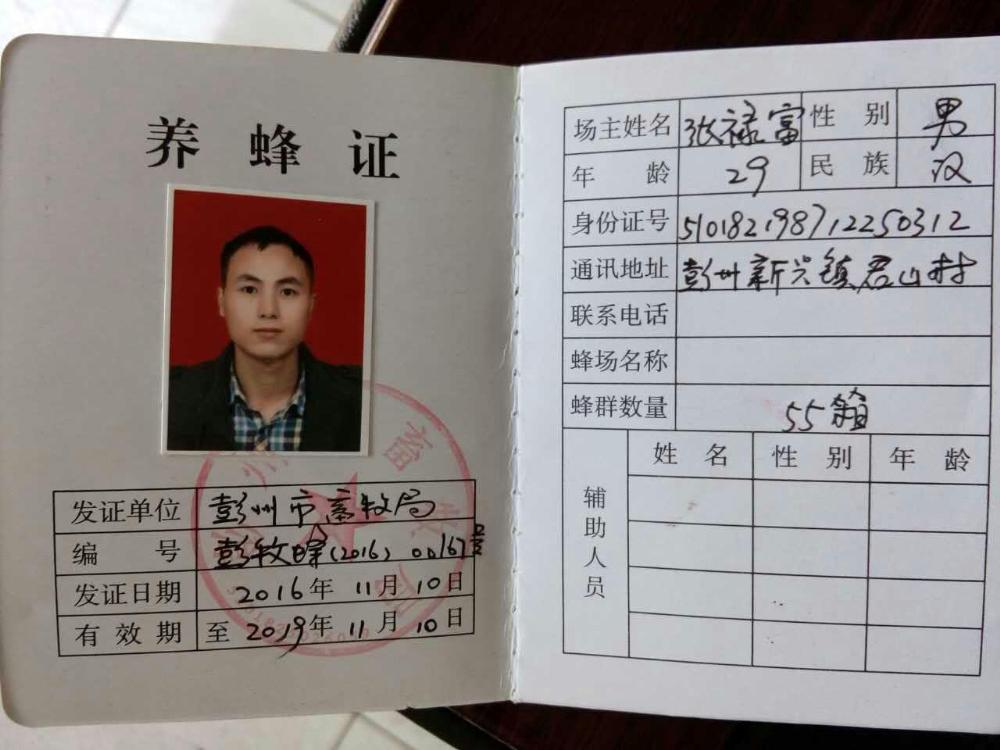 养蜂证
发证单位 彭州市畜牧局
编号 彭牧蜂(2016) 00167号
发证日期 2016年 11月 10日
有效期 至 2019年 11月 10日
场主姓名 张禄富 性别 男
年龄 29 民族 汉
身份证号 510182198712250312
通讯地址 彭州新兴镇君山村
联系电话
蜂场名称
蜂群数量 55箱
辅助人员 姓名 性别 年龄